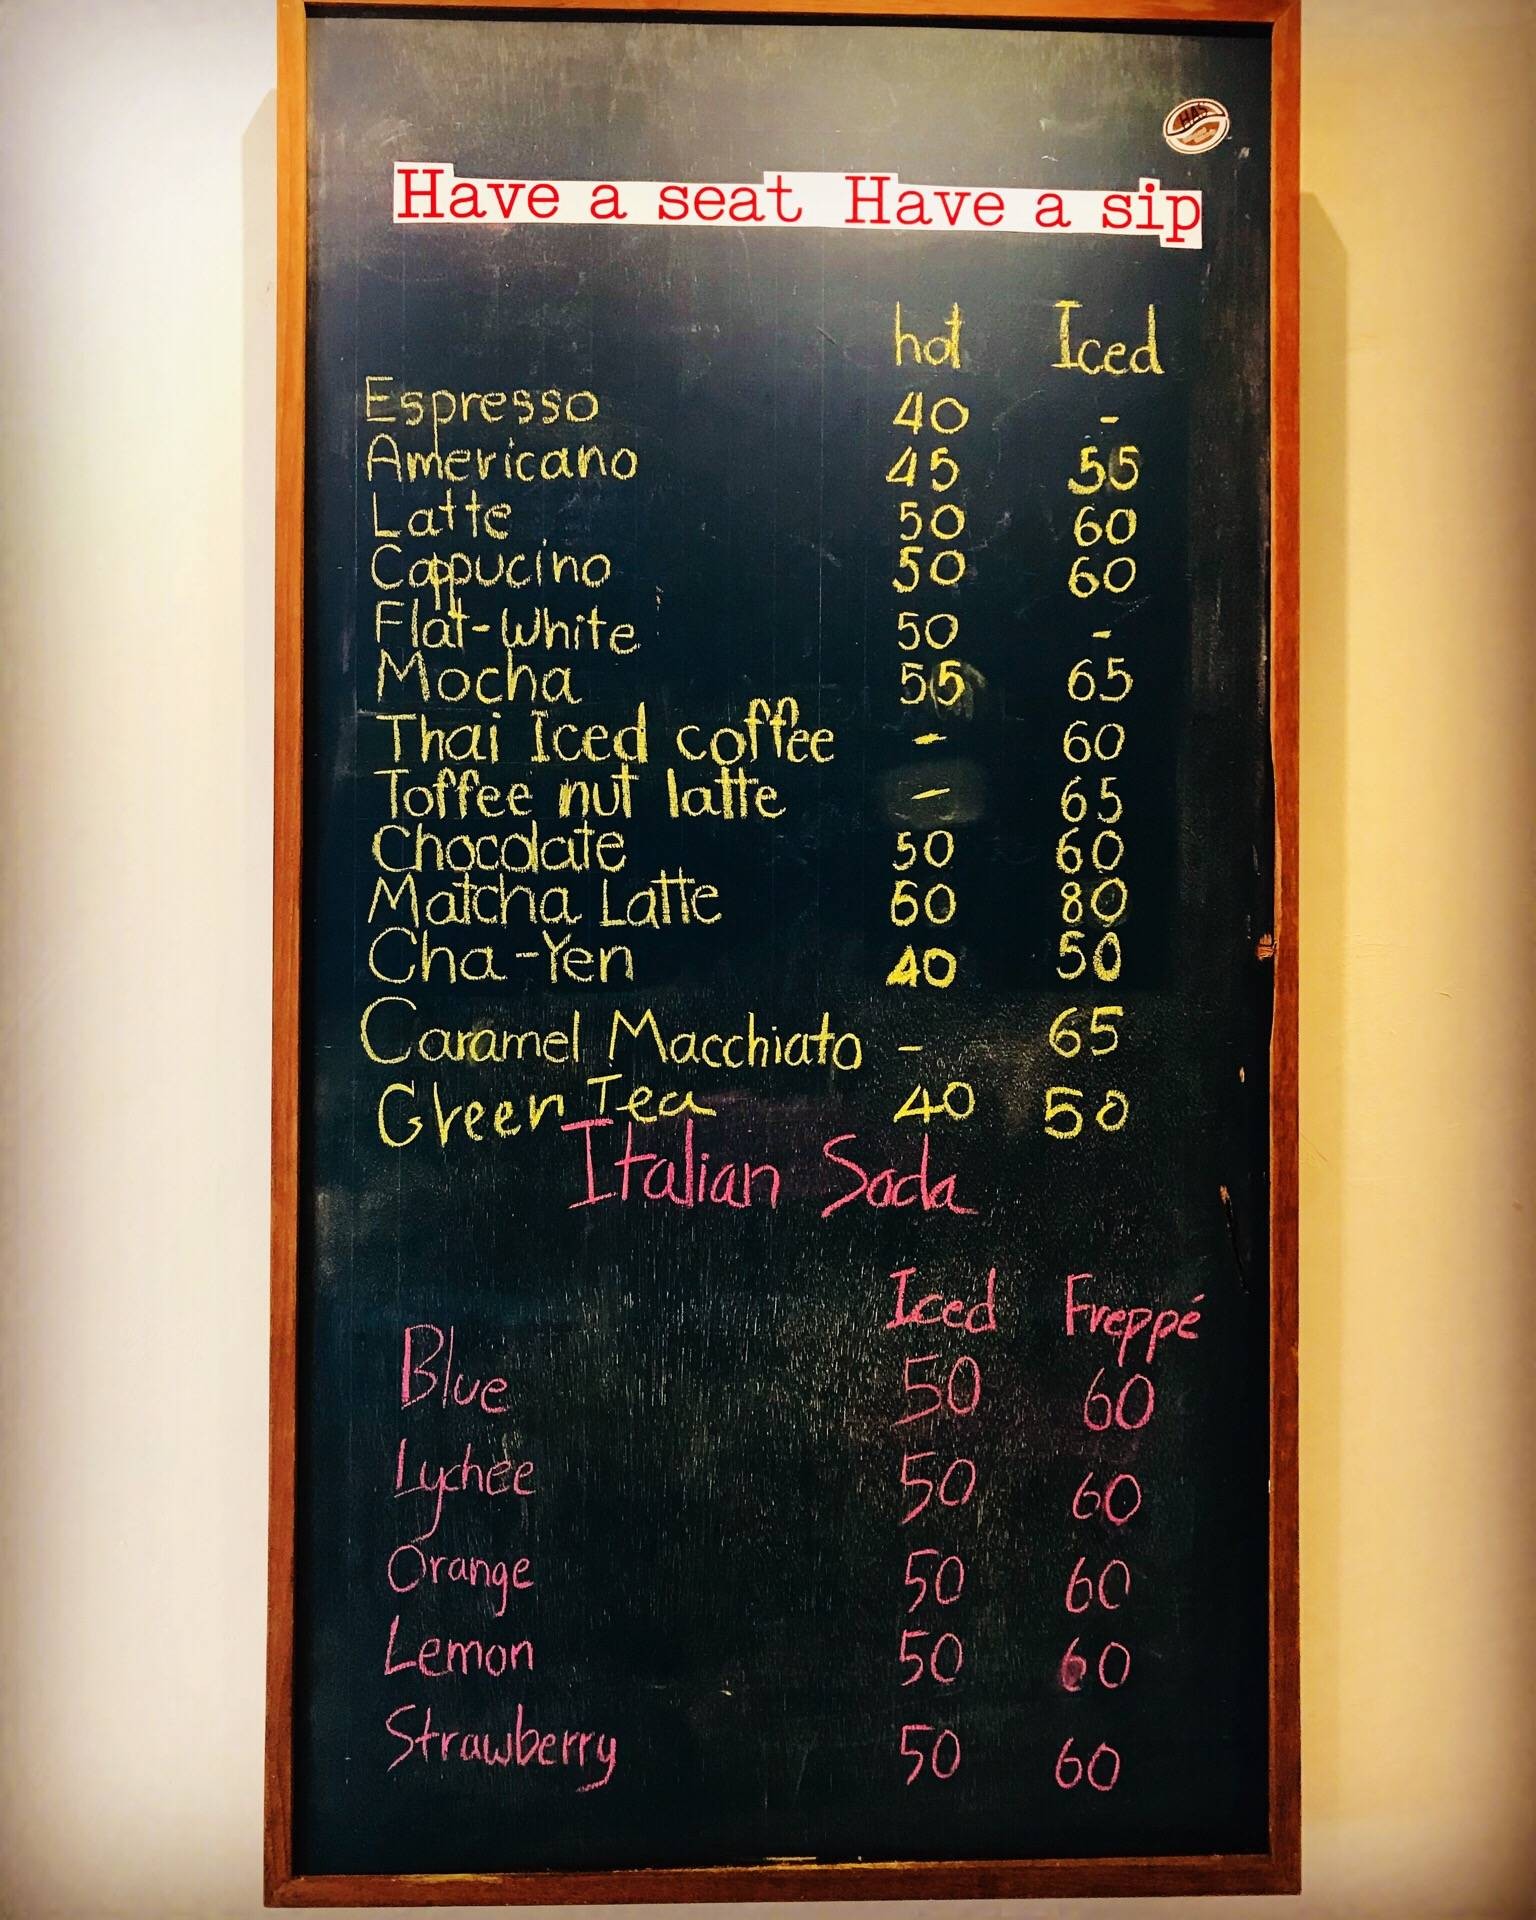 HAS
Have a seat Have a sip
hot Iced
Espresso 40 -
Americano 45 55
Latte 50 60
Cappucino 50 60
Flat-White 50 -
Mocha 55 65
Thai Iced coffee - 60
Toffee nut latte - 65
Chocolate 50 60
Matcha Latte 60 80
Cha-Yen 40 50
Caramel Macchiato - 65
Green Tea 40 50
Italian Soda
Iced Freppé
Blue 50 60
Lychee 50 60
Orange 50 60
Lemon 50 60
Strawberry 50 60